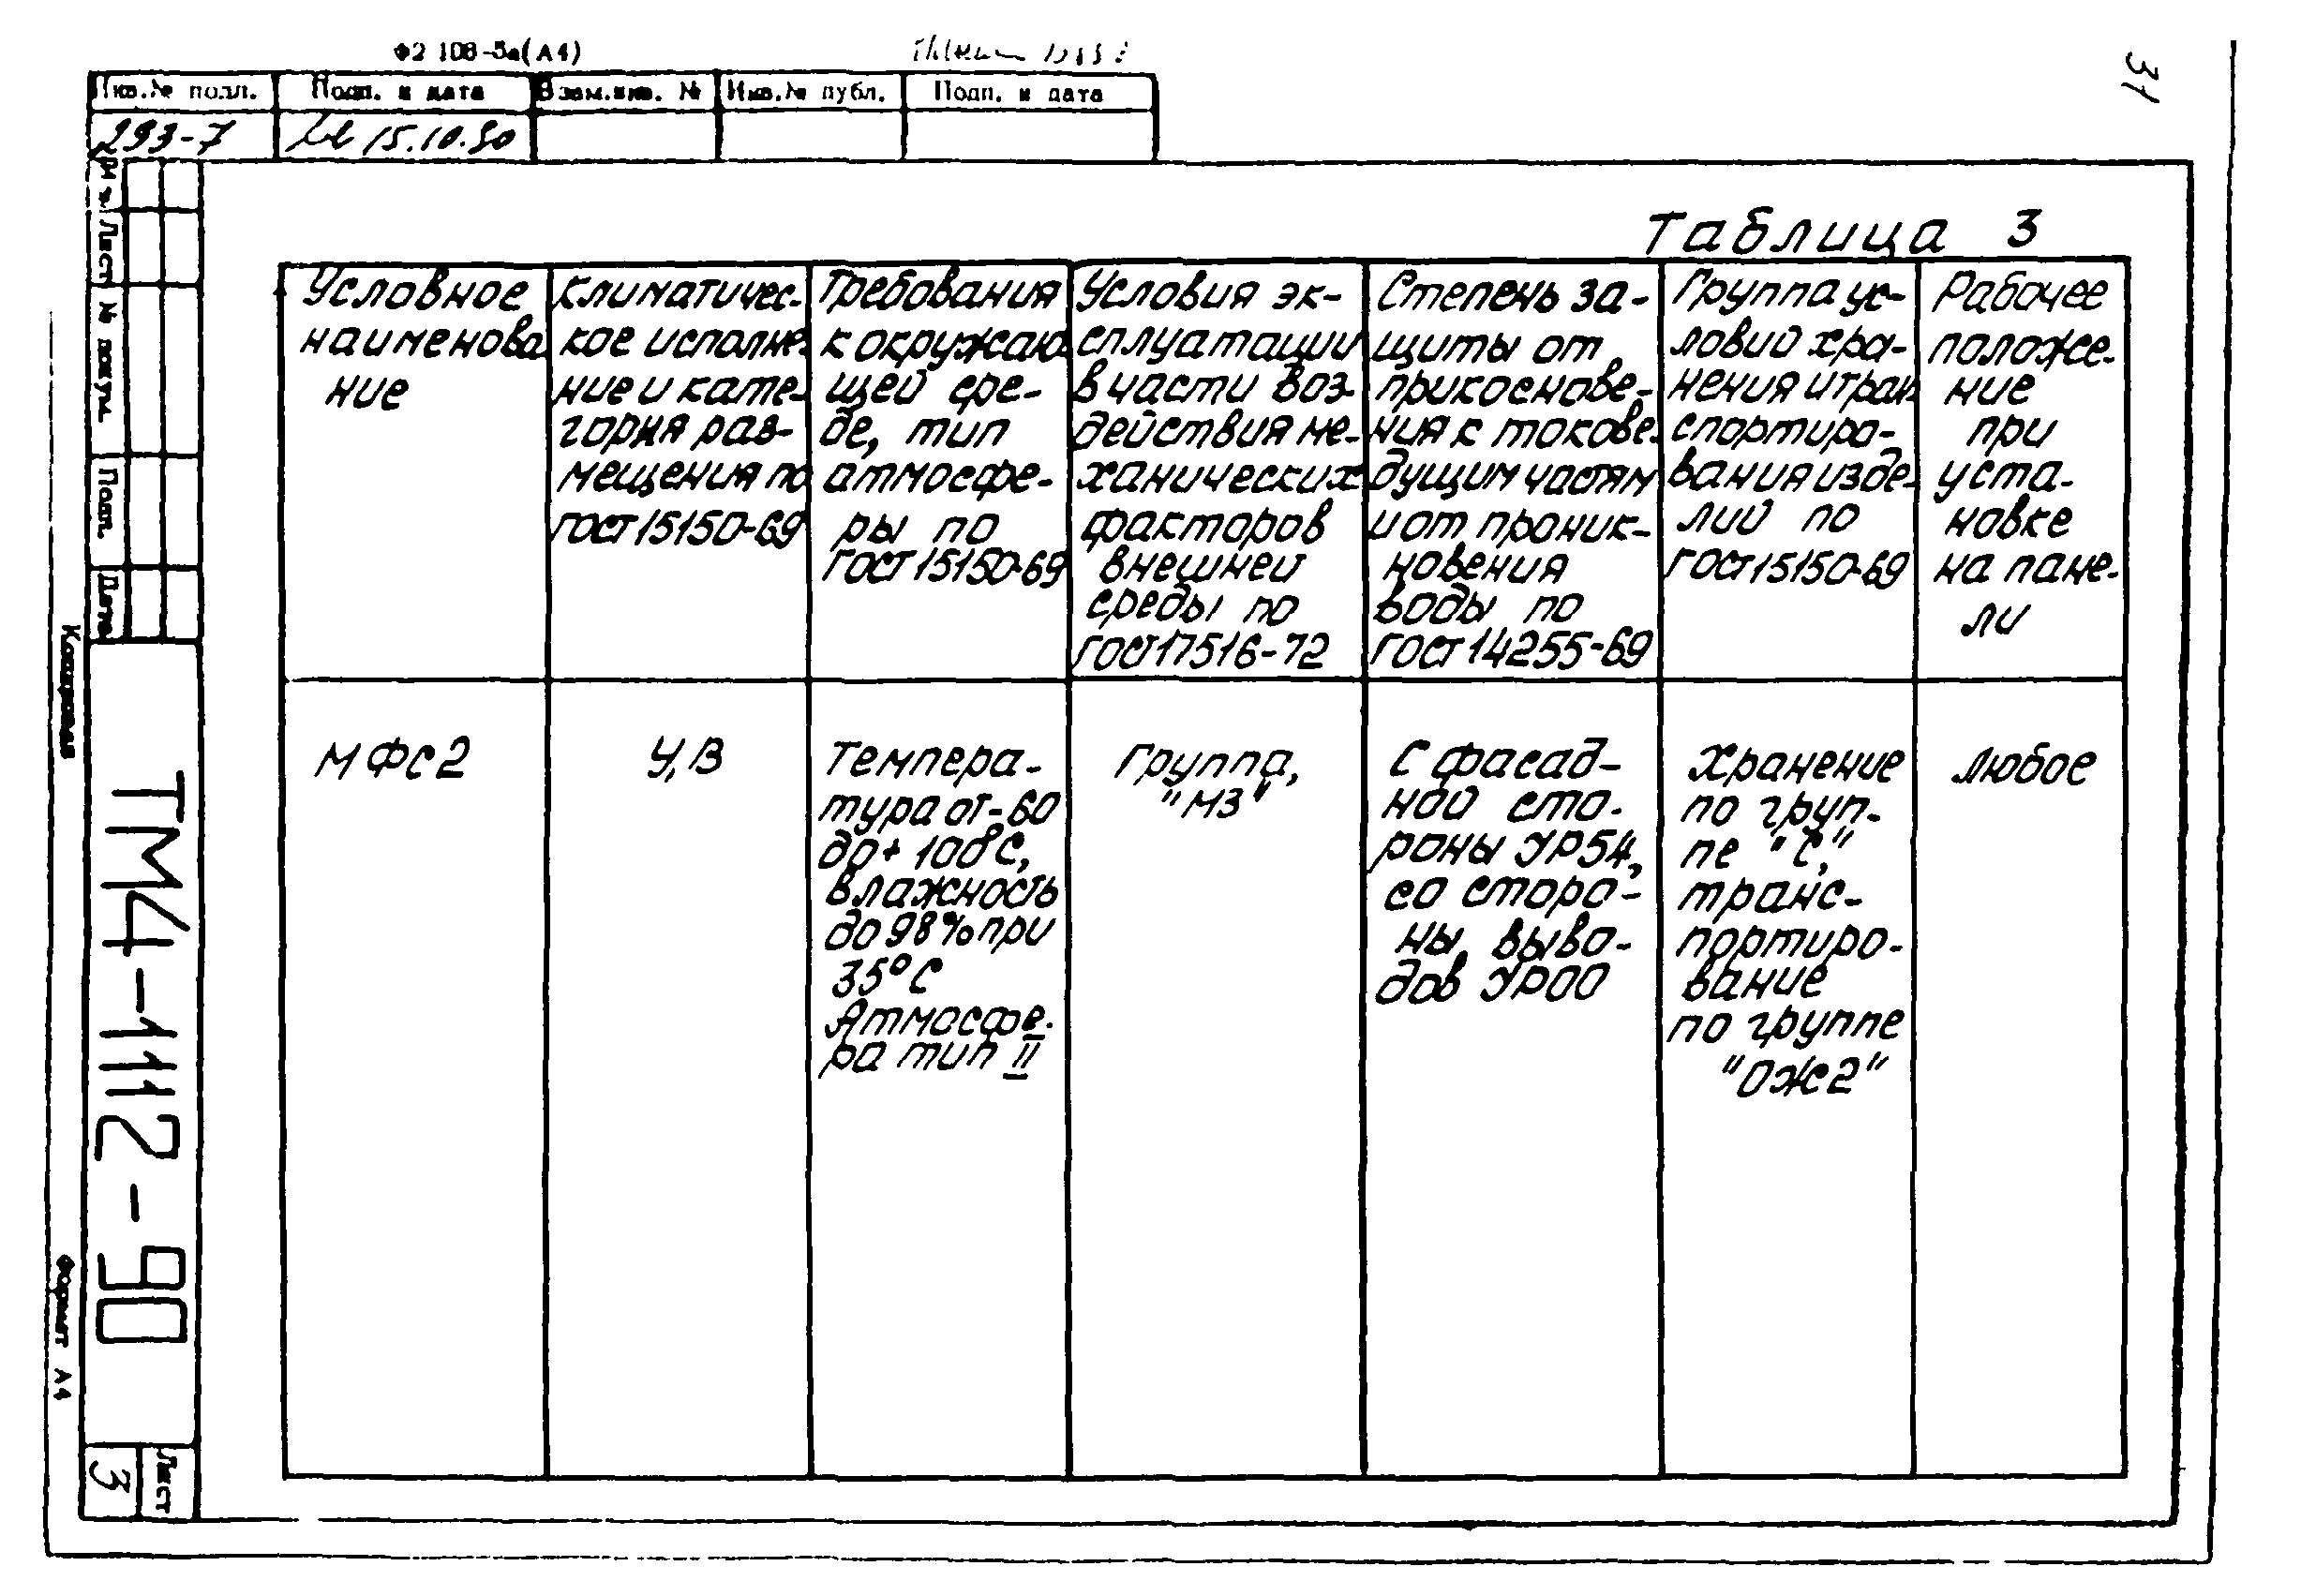 Ф2 108-5а(А4)
31
Инв.№ подл.
Подп. и дата
Взам.инв. №
Инв.№ публ.
Подп. и дата
293-7
15.10.90
Таблица 3
Условное
наименова
ние
Климатичес-
кое исполне-
ние и кате-
гория раз-
мещения по
ГОСТ 15150-69
Требования
к окружаю-
щей сре-
де, тип
атмосфе-
ры по
ГОСТ 15150-69
Условия эк-
сплуатации
в части воз-
действия ме-
ханических
факторов
внешней
среды по
ГОСТ 17516-72
Степень за-
щиты от
прикоснове-
ния к токове-
дущим частям
и от проник-
новения
воды по
ГОСТ 14255-69
Группа ус-
ловий хра-
нения и тран
спортиро-
вания изде-
лий по
ГОСТ 15150-69
Рабочее
положе-
ние
при
уста-
новке
на пане-
ли
МФС2
У,В
Темпера-
тура от-60
до+100°С,
влажность
до 98% при
35°С
Атмосфе-
ра тип II
Группа,
"М3"
С фасад-
ной сто-
роны УР54,
со сторо-
ны выво-
дов УР00
Хранение
по груп-
пе "С,"
транс-
портиро-
вание
по группе
"ОЖ2"
любое
Лист
№ докум.
Подп.
Дата
ТМ4-1112-90
Лист
3
Копировал
Формат А4